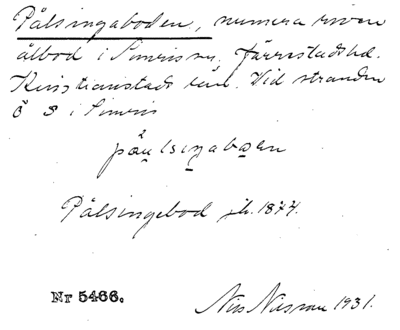 Pålsingaboden, numera riven
ålbod i Simris sn. Järrestads hd.
Kristianstads län. Vid stranden
ö s i Simris
Pålsingebod jb. 1877.
Nr 5466.
Nils Nilsson 1931.